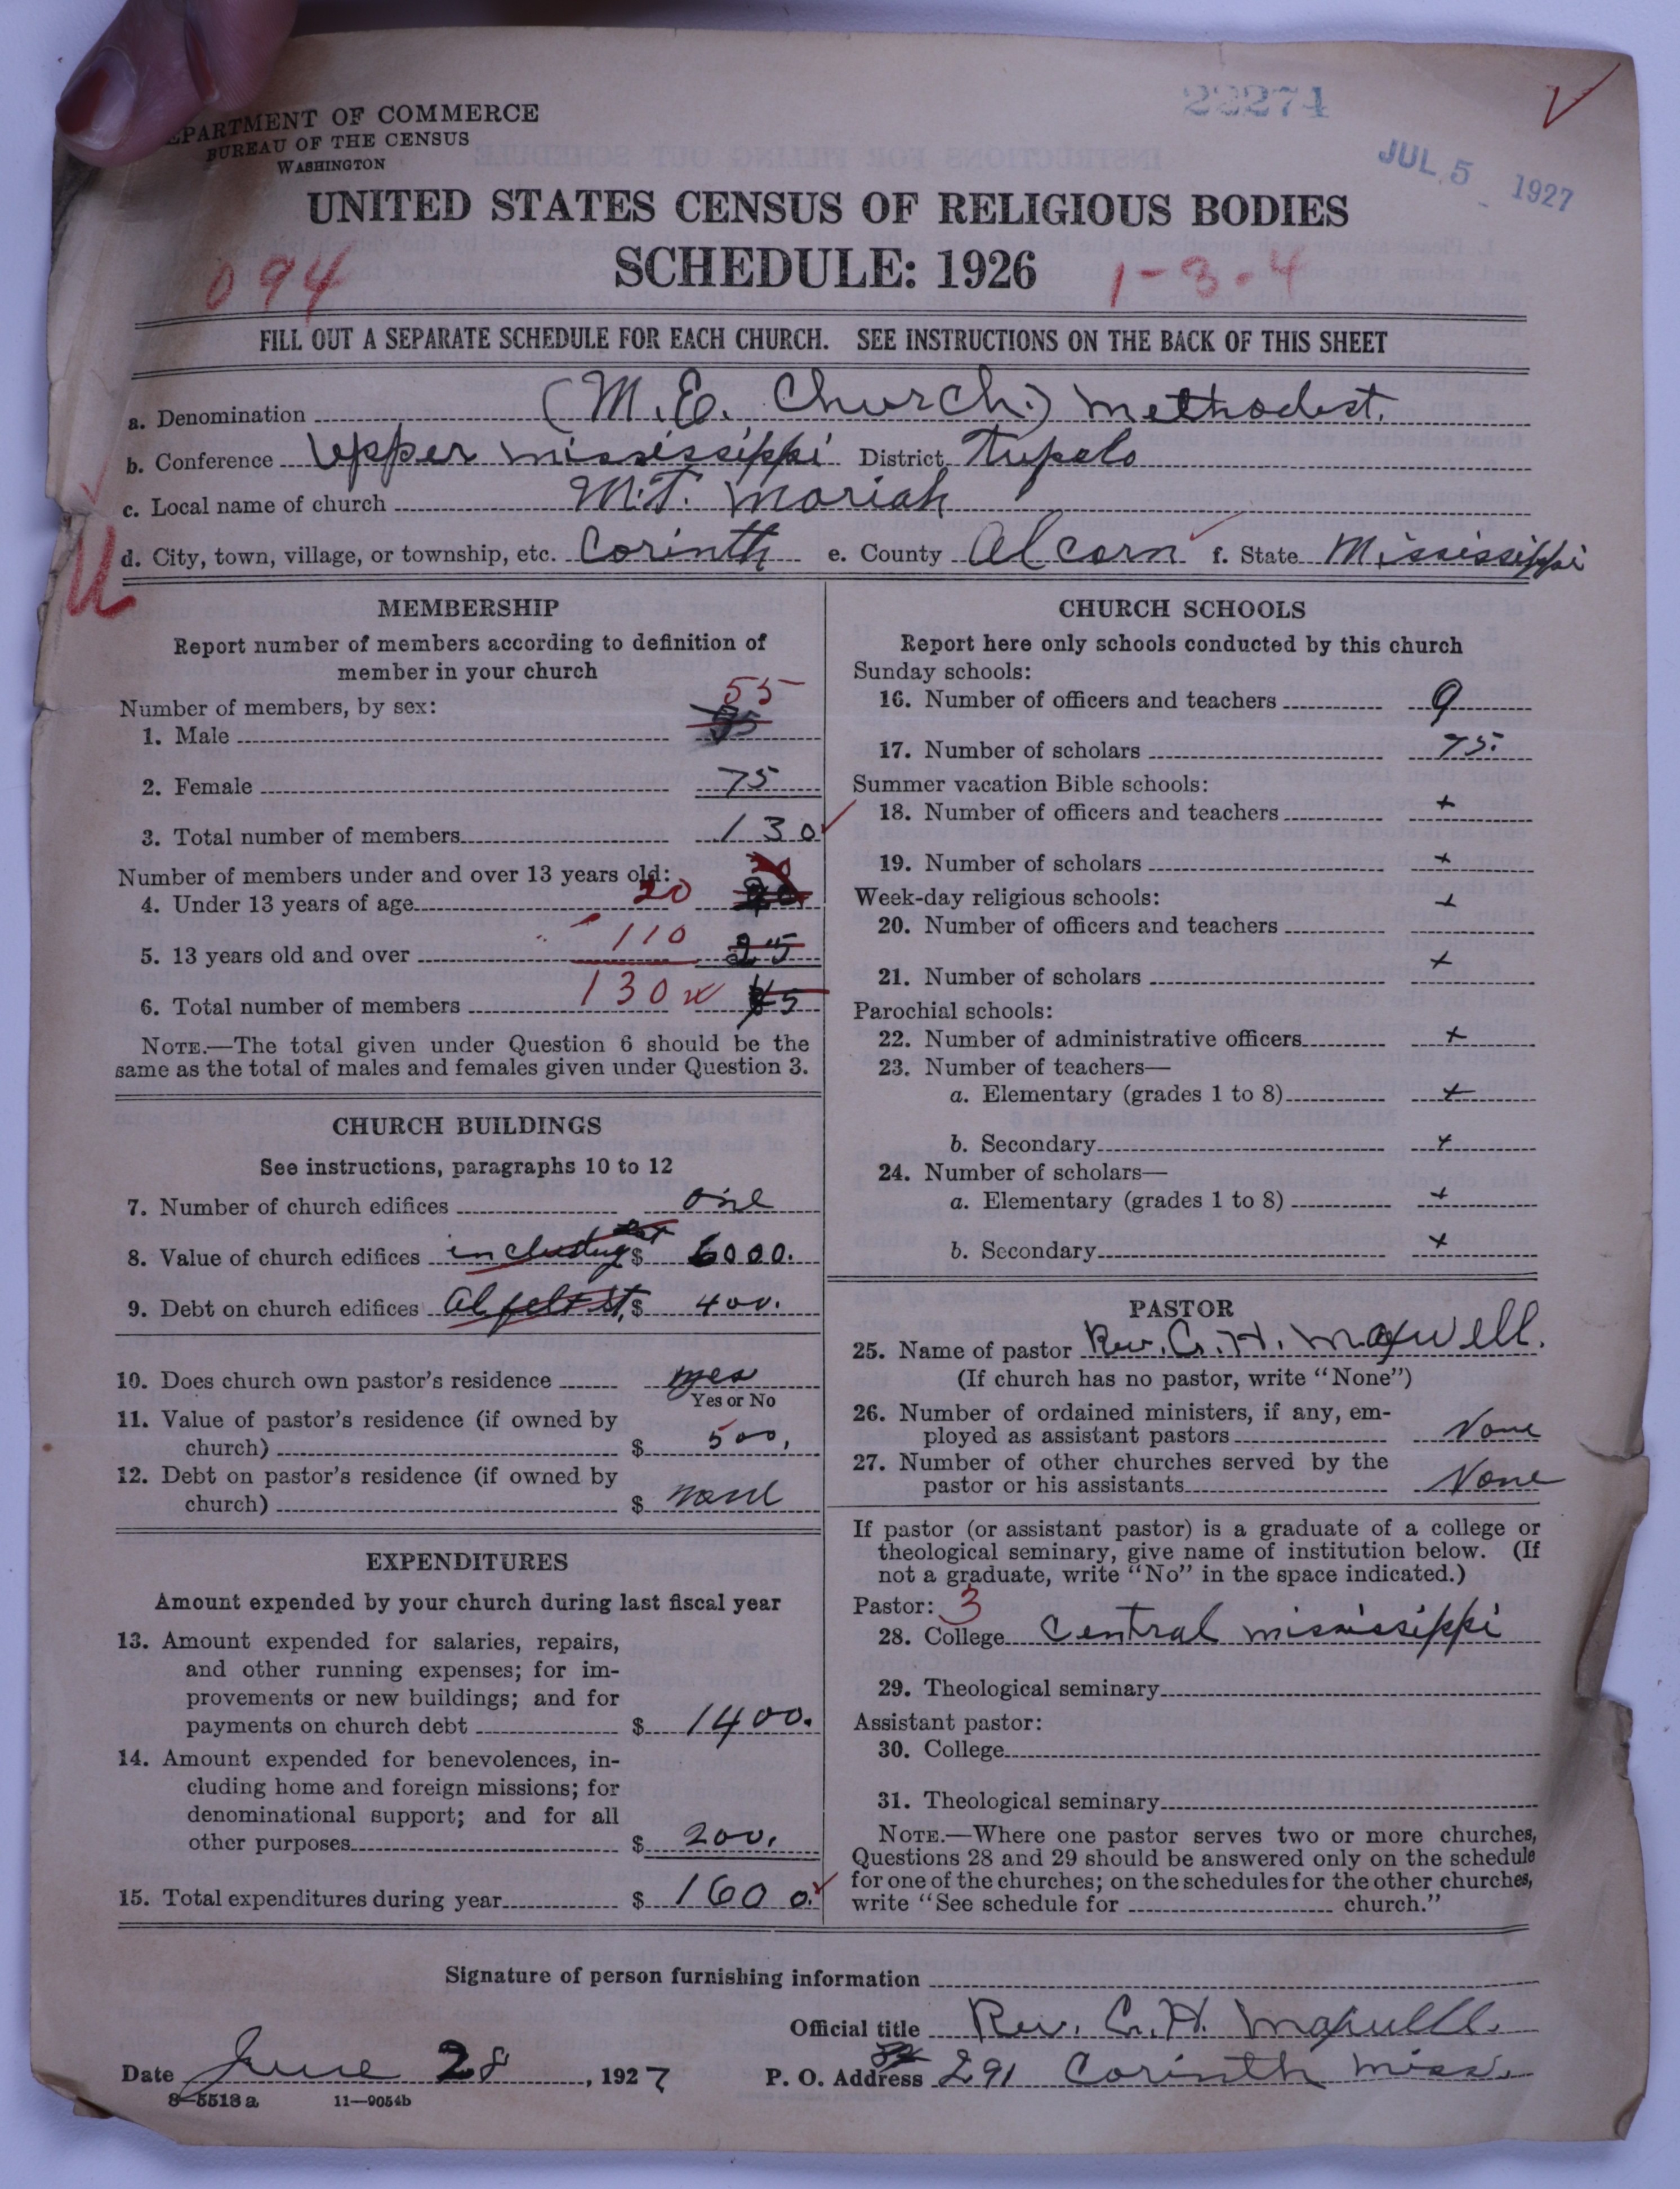 22274
JUL 5 1927
EPARTMENT OF COMMERCE
BUREAU OF THE CENSUS
WASHINGTON
UNITED STATES CENSUS OF RELIGIOUS BODIES
SCHEDULE: 1926
094
1-3-4
FILL OUT A SEPARATE SCHEDULE FOR EACH CHURCH. SEE INSTRUCTIONS ON THE BACK OF THIS SHEET
a. Denomination (M.E. Church.) Methodist.
b. Conference Upper Mississippi District Tupelo
c. Local name of church M.T. Moriah
d. City, town, village, or township, etc. Corinth e. County Alcorn f. State Mississippi
MEMBERSHIP
Report number of members according to definition of
member in your church
Number of members, by sex:
55
1. Male
2. Female 75
3. Total number of members 130
Number of members under and over 13 years old:
4. Under 13 years of age 20
5. 13 years old and over 110 25
6. Total number of members 130 45
NOTE.—The total given under Question 6 should be the
same as the total of males and females given under Question 3.
CHURCH BUILDINGS
See instructions, paragraphs 10 to 12
7. Number of church edifices one
8. Value of church edifices including $ 6000.
9. Debt on church edifices $ 400.
10. Does church own pastor's residence yes
Yes or No
11. Value of pastor's residence (if owned by
church) $ 500.
12. Debt on pastor's residence (if owned by
church) $ none
EXPENDITURES
Amount expended by your church during last fiscal year
13. Amount expended for salaries, repairs,
and other running expenses; for im-
provements or new buildings; and for
payments on church debt $ 1400.
14. Amount expended for benevolences, in-
cluding home and foreign missions; for
denominational support; and for all
other purposes $ 200.
15. Total expenditures during year $ 1600.
CHURCH SCHOOLS
Report here only schools conducted by this church
Sunday schools:
16. Number of officers and teachers 9
17. Number of scholars 75.
Summer vacation Bible schools:
18. Number of officers and teachers +
19. Number of scholars +
Week-day religious schools:
20. Number of officers and teachers +
21. Number of scholars +
Parochial schools:
22. Number of administrative officers +
23. Number of teachers—
a. Elementary (grades 1 to 8) +
b. Secondary +
24. Number of scholars—
a. Elementary (grades 1 to 8) +
b. Secondary +
PASTOR
25. Name of pastor Rev. G. H. Maxwell.
(If church has no pastor, write "None")
26. Number of ordained ministers, if any, em-
ployed as assistant pastors None
27. Number of other churches served by the
pastor or his assistants None
If pastor (or assistant pastor) is a graduate of a college or
theological seminary, give name of institution below. (If
not a graduate, write "No" in the space indicated.)
Pastor: 3
28. College Central Mississippi
29. Theological seminary
Assistant pastor:
30. College
31. Theological seminary
NOTE.—Where one pastor serves two or more churches,
Questions 28 and 29 should be answered only on the schedule
for one of the churches; on the schedules for the other churches,
write "See schedule for church."
Signature of person furnishing information
Official title Rev. G. H. Maxwell.
Date June 28, 1927 P. O. Address 291 Corinth Miss.
8-5518a 11-9054b